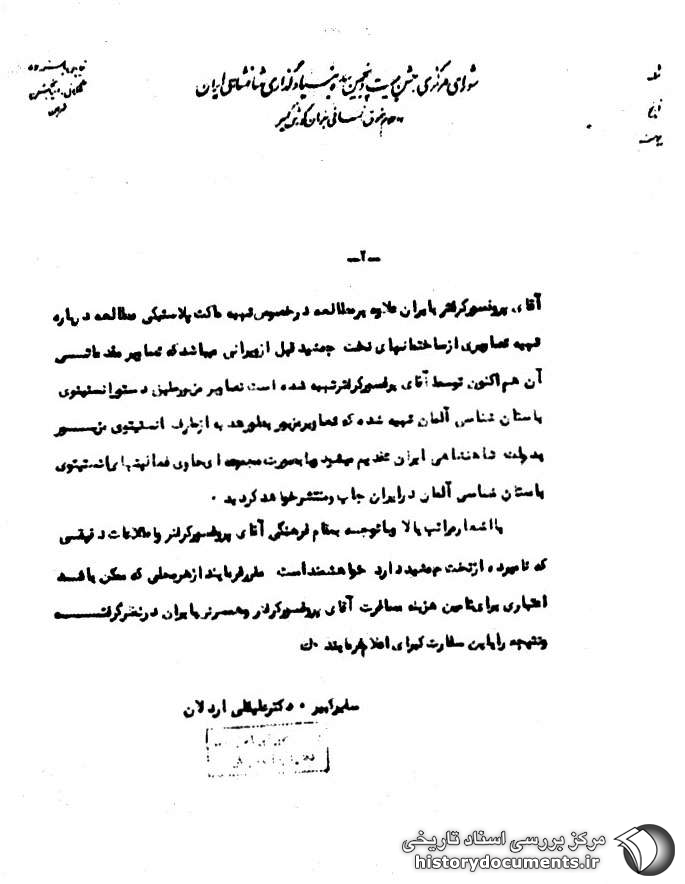 شماره
تاریخ
پیوست
شورای مرکزی جشن بیست و پنجمین سده بنیادگذاری شاهنشاهی ایران
و اعلام حقوق انسانی بفرمان کورش کبیر
-۲-
آقای پروفسورکرفتر بایران علاوه برمطالعه درخصوص تهیه ماکت پلاستیکی مطالعه درباره
تهیه تصاویری ازساختمانهای تخت جمشید قبل ازویرانی میباشدکه تصاویر مقدماتسی
آن هم اکنون توسط آقای پرفسورکرفترتهیه شده است تصاویر مزبورطبق دستورانستیتوی
باستان شناسی آلمان تهیه شده که تصاویرمزبور بطورهدیه ازطرف انستیتوی مزبسور
بدولت شاهنشاهی ایران تقدیم میشود وبصورت مجموعه ای حاوی فعالیتهای انستیتوی
باستان شناسی آلمان درایران چاپ ومنتشرخواهدگردید ۰
بااشعارمراتب بالا وباتوجه بمقام فرهنگی آقای پروفسورکرفتر واطلاعات دقیقسی
که نامبرده ازتخت جمشیددارد خواهشمنداست مقررفرمایندازهرمحلی که ممکن باشد
اعتباری برای تامین هزینه مسافرت آقای پروفسورکرفتر وهمسرش بایران درنظرگرفتسه
ونتیجه رابااین سفارت کبرای اعلام فرمایند ۰ك
سفیرکبیر ۰ دکترعلیقلی اردلان
مرکز بررسی اسناد تاریخی
historydocuments.ir